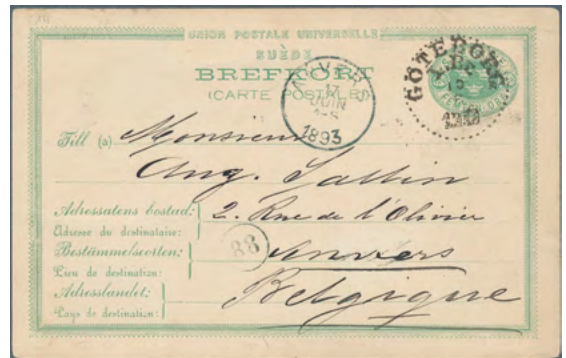 UNION POSTALE UNIVERSELLE
SUÈDE
BREFKORT
(CARTE POSTALE)
ANVERS
17
JUIN
1893
GÖTEBORG
Till (à) Monsieur
Aug.
Adressatens bostad:
2. Rue de l'Olivier
Adresse du destinataire:
88
Bestämmelseorten:
Anvers
Lieu de destination:
Adresslandet:
Belgique
Pays de destination: